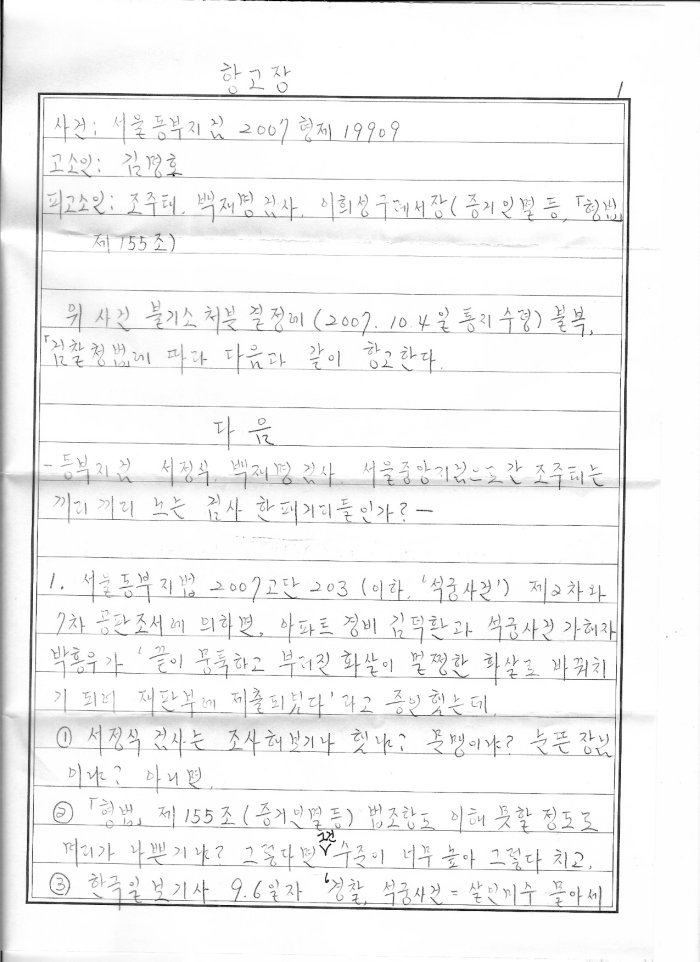 항고장
1
사건: 서울동부지검 2007 형제 19909
고소인: 김명호
피고소인: 조주태, 백재명 검사, 이희성 구매서장(증거인멸 등, 「형법」
제155조)
위 사건 불기소 처분 결정에(2007. 10. 4일 통지 수령) 불복,
「검찰청법」에 따라 다음과 같이 항고한다.
다음
- 동부지검 서정식, 백재명 검사, 서울중앙지검으로 간 조주태는
끼리끼리 노는 검사 한패거리들인가? -
1. 서울동부지법 2007고단 203 (이하, '석궁사건') 제2차와
7차 공판조서에 의하면, 아파트 경비 김덕환과 석궁사건 가해자
박홍우가 '끝이 뭉툭하고 부러진 화살이 멀쩡한 화살로 바꿔치
기 되어 재판부에 제출되었다'라고 증언했는데,
① 서정식 검사는 조사해보기나 했나? 문맹이냐? 눈뜬 장님
이냐? 아니면,
② 「형법」 제155조(증거인멸 등) 법조항도 이해 못할 정도로
머리가 나쁜거냐? 그렇다면 그건 수준이 너무 높아 그렇다 치고,
③ 한국일보기사 9.6일자 '경찰, 석궁사건=살인미수 몰아세